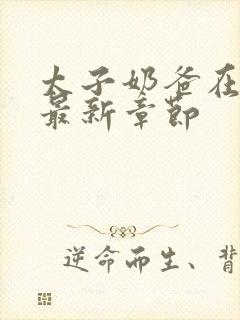 太子奶爸在
最新章节
逆命而生、背